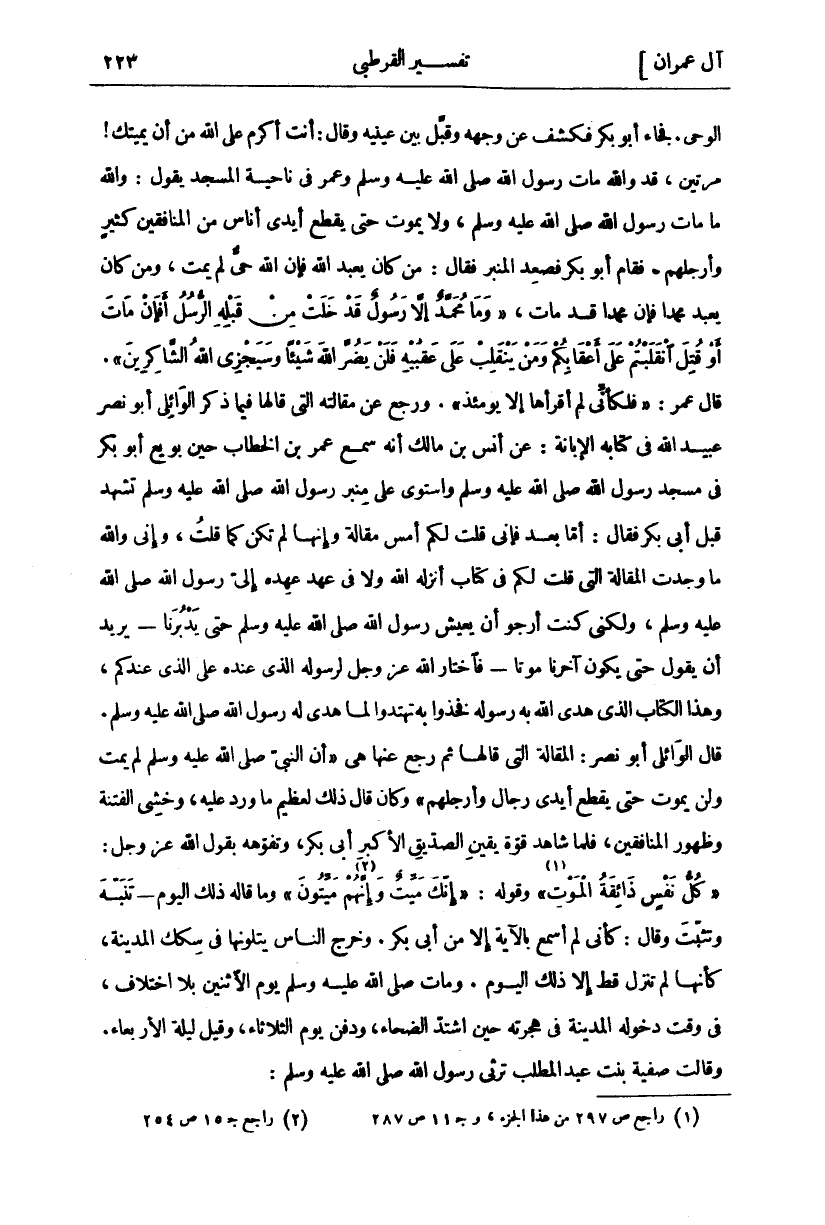 آل عمران ] تفسير القرطبى ٢٢٣
الوحى. فجاء أبو بكر فكشف عن وجهه وقبَّل بين عينيه وقال : أنت أكرم على الله من أن يميتك !
مرتين ، قد والله مات رسول الله صلى الله عليه وسلم وعمر فى ناحية المسجد يقول : والله
ما مات رسول الله صلى الله عليه وسلم ، ولا يموت حتى يقطع أيدى أناس من المنافقين كثيرٍ
وأرجلهم . فقام أبو بكر فصعِد المنبر فقال : من كان يعبد الله فإن الله حىٌّ لم يمت ، ومن كان
يعبد محمدا فإن محمدا قد مات ، « وَمَا مُحَمَّدٌ إِلَّا رَسُولٌ قَدْ خَلَتْ مِنْ قَبْلِهِ الرُّسُلُ أَفَإِنْ مَاتَ
أَوْ قُتِلَ ٱنْقَلَبْتُمْ عَلَى أَعْقَابِكُمْ وَمَنْ يَنْقَلِبْ عَلَى عَقِبَيْهِ فَلَنْ يَضُرَّ اللهَ شَيْئًا وَسَيَجْزِى اللهُ الشَّاكِرِينَ» .
قال عمر : « فلكأنِّى لم أقرأها إلا يومئذ» . ورجع عن مقالته التى قالها فيما ذكر الوَائِلى أبو نصر
عبيد الله فى كتابه الإبانة : عن أنس بن مالك أنه سمع عمر بن الخطاب حين بويع أبو بكر
فى مسجد رسول الله صلى الله عليه وسلم واستوى على مِنبر رسول الله صلى الله عليه وسلم تشهد
قبل أبى بكر فقال : أمّا بعد فإنى قلت لكم أمس مقالة وإنها لم تكن كما قلتُ ، وإنى والله
ما وجدت المقالة التى قلت لكم فى كتاب أنزله الله ولا فى عهد عهِده إلىّ رسول الله صلى الله
عليه وسلم ، ولكنى كنت أرجو أن يعيش رسول الله صلى الله عليه وسلم حتى يَدْبُرَنا — يريد
أن يقول حتى يكون آخرنا موتا — فٱختار الله عز وجل لرسوله الذى عنده على الذى عندكم ،
وهذا الكتاب الذى هدى الله به رسوله فخذوا به تهتدوا لما هدى له رسول الله صلى الله عليه وسلم.
قال الوَائلى أبو نصر : المقالة التى قالها ثم رجع عنها هى «أن النبىّ صلى الله عليه وسلم لم يمت
ولن يموت حتى يقطع أيدى رجال وأرجلهم» وكان قال ذلك لعظيم ما ورد عليه، وخشِى الفتنة
وظهور المنافقين، فلما شاهد قوّة يقين الصدّيق الأكبر أبى بكر، وتفوّهه بقول الله عز وجل :
« كُلُّ نَفْسٍ ذَائِقَةُ الْمَوْتِ»(١) وقوله : « إِنَّكَ مَيِّتٌ وَإِنَّهُمْ مَيِّتُونَ »(٢) وما قاله ذلك اليوم — تَنَبَّهَ
وتثبَّتَ وقال : كأنى لم أسمع بالآية إلا من أبى بكر . وخرج الناس يتلونها فى سِكك المدينة ،
كأنها لم تنزل قط إلا ذلك اليوم . ومات صلى الله عليه وسلم يوم الآثنين بلا اختلاف ،
فى وقت دخوله المدينة فى هجرته حين اشتدّ الضحاء، ودفن يوم الثلاثاء، وقيل ليلة الأربعاء.
وقالت صفية بنت عبد المطلب ترثى رسول الله صلى الله عليه وسلم :
(١) راجع ص ٢٩٧ من هذا الجزء ، و جـ ١١ ص ٢٨٧ (٢) راجع جـ ١٥ ص ٢٥٤